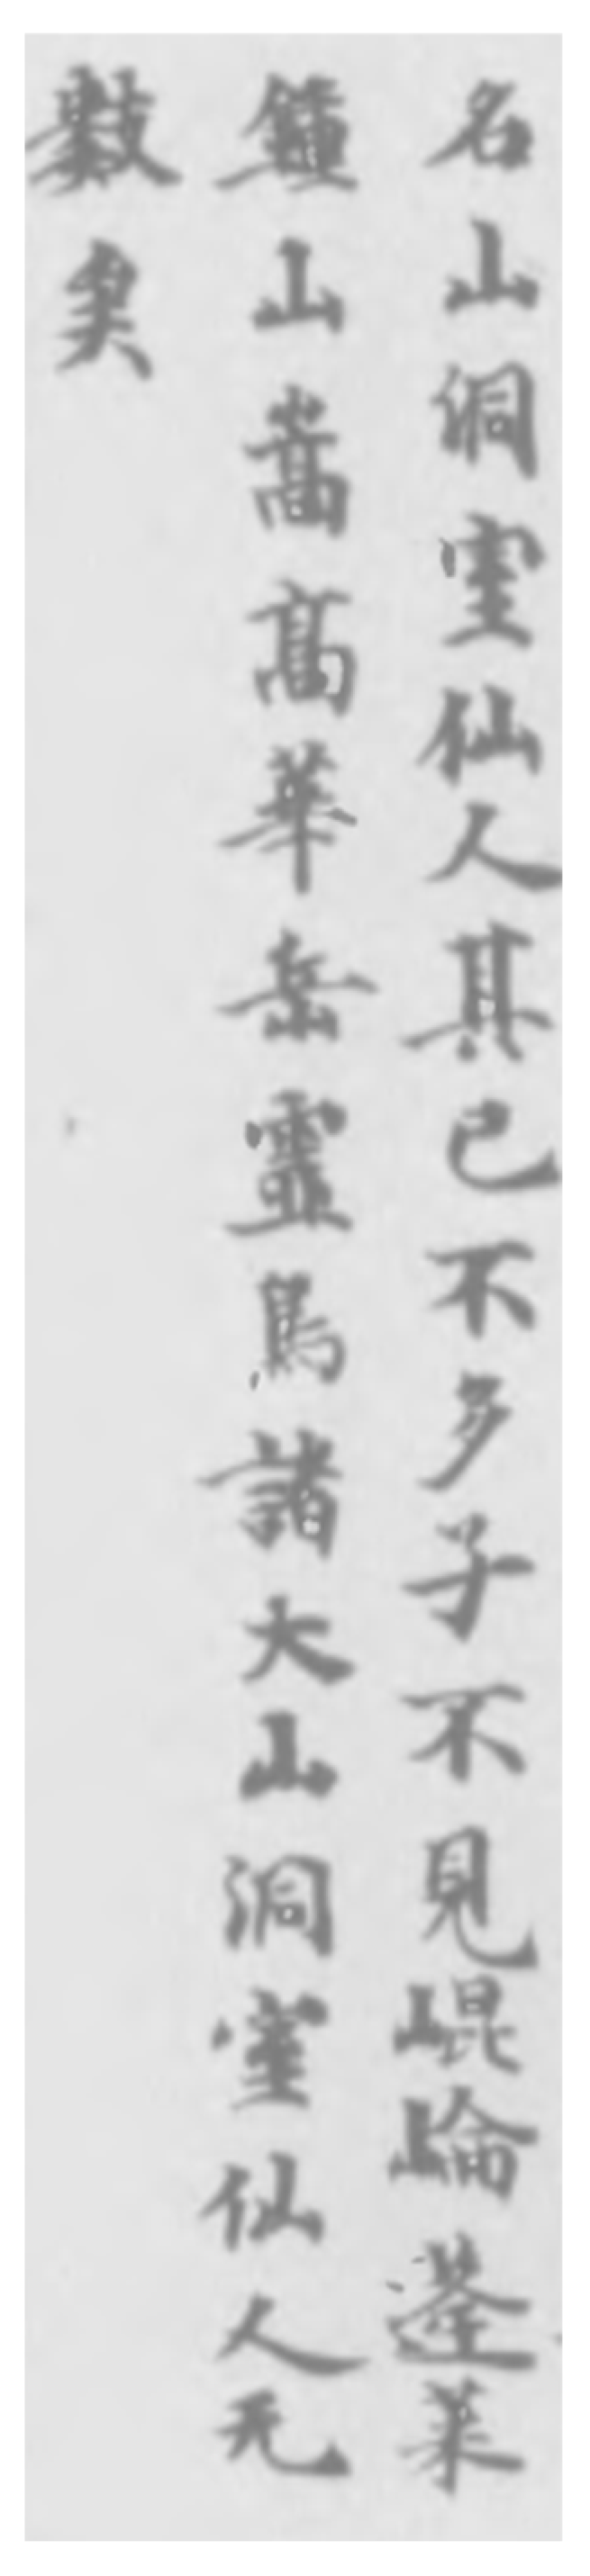 名山洞室仙人其已不多子不見崐崘蓬萊
鍾山嵩高華岳靈馬諸大山洞室仙人无
數矣